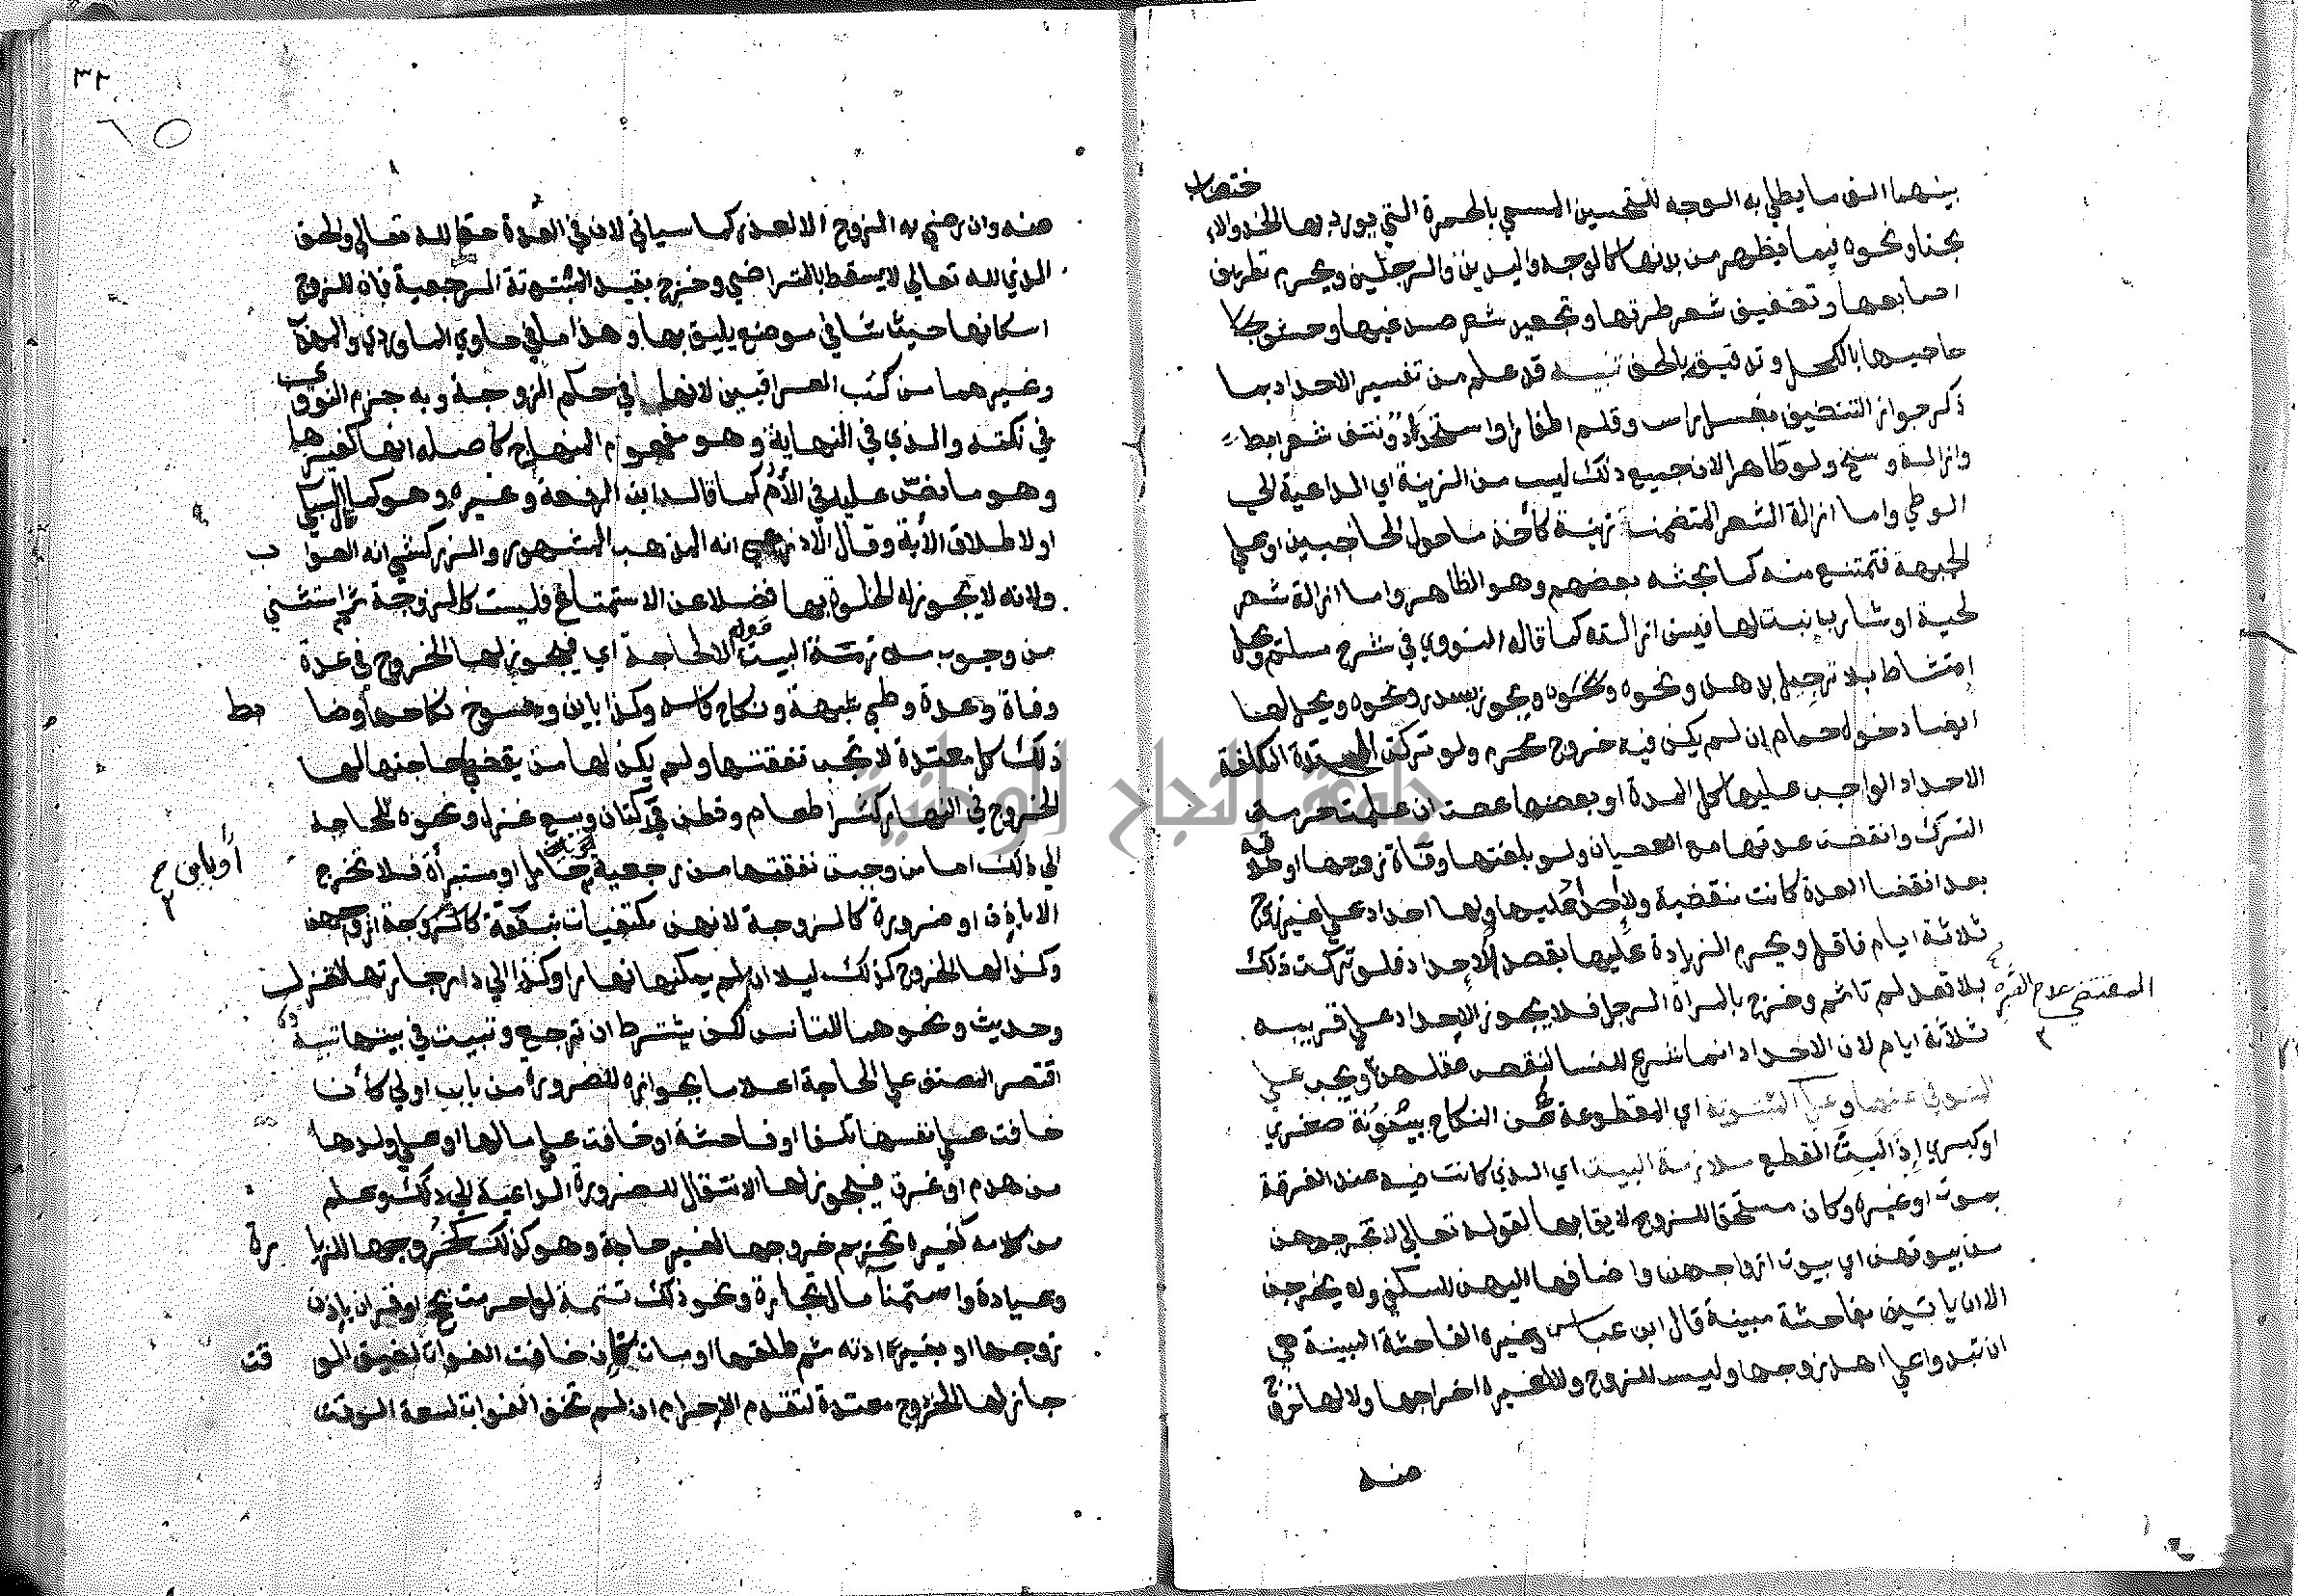 بينهما الق ما يطلى به الوجه للتحسين المسمى بالحمرة التي يورد بها الخد والاختضاب
بحنا ونحوه فيما يظهر من بدنها كالوجه واليدين والرجلين ويحرم تطريف
اصابعها وتصفيف شعر طرتها وتجعيد شعر صدغيها وحشو
حاجبيها بالكحل وتدقيقه بالحف تنبيه قد علم من تفسير الاحداد بما
ذكر جواز التنظيف بغسل راس وقلم اظفار واستحداد ونتف شعر ابط
وازالة وسخ ولو ظاهرا لان جميع ذلك ليس من الزينة اي الداعية الى
الوطي واما ازالة الشعر المتضمنة زينة كأخذ ما حول الحاجبين او على
الجبهة فتمتنع منه كما بحثه بعضهم وهو الظاهر واما ازالة شعر
لحية او شارب نبت لها فيسن ازالته كما قاله النووي في شرح مسلم ويحل
امتشاط بلا ترجيل بدهن ونحوه ويجوز بسدر ونحوه ويحل لها
ايضا دخول حمام إن لم يكن فيه خروج محرم ولو تركت المعتدة المكلفة
الاحداد الواجب عليها كل المدة او بعضها عصت ان علمت حرمة
الترك وانقضت عدتها مع العصيان ولو بلغتها وفاة زوجها او طلاقه
بعد انقضا العدة كانت منقضية ولا احداد عليها ولها احداد على غير زوج
ثلاثة ايام فاقل ويحرم الزيادة عليها بقصد الاحداد فلو تركت ذلك
بلا قصد لم تاثم وخرج بالمراة الرجل فلا يجوز الإحداد على قريبه
ثلاثة ايام لان الاحداد انما شرع للنسا لنقص عقلهن ويجب على
المتوفى عنها وعلى المبتوتة اي المقطوعة عن النكاح ببينونة صغرى
او كبرى إذ البت القطع ملازمة البيت اي الذي كانت فيه عند الفرقة
بموت او غيره وكان مستحق للزوج لايقا بها لقوله تعالى لا تخرجوهن
من بيوتهن اي بيوت ازواجهن واضافها اليهن للسكنى ولا يخرجن
الا ان ياتين بفاحشة مبينة قال ابن عباس وغيره الفاحشة المبينة هي
ان تبذوا على اهل زوجها وليس للزوج ولا لغيره اخراجها ولا لها خروج
منه
٣٢
٦٥
منه وان رضي به الزوج الا لعذر كما سياتي لان في العدة حقا لله تعالى والحق
الذي لله تعالى لا يسقط بالتراضي وخرج بقيد المبتوتة الرجعية فان للزوج
اسكانها حيث شا في موضع يليق بها وهذا ما في حاوي الماوردي والمهذب
وغيرهما من كتب العراقيين لانها في حكم الزوجة وبه جزم النووي
في نكته والذي في النهاية وهو مفهوم المنهاج كاصله انها كغيرها
وهو ما نص عليه في الأم كما قاله ابن الرفعة وغيره وهو كما قال السبكي
اولا طلاق الأية وقال الاذرعي انه المذهب المشهور والزركشي انه الصواب
ولانه لا يجوز له الخلوة بها فضلا عن الاستمتاع فليست كالزوجة ثم استثنى
من وجوب ملازمة البيت قوله الا لحاجة اي فيجوز لها الخروج في عدة
وفاة وعدة وطي بشبهة ونكاح فاسد وكذا باين ومفسوخ نكاحها وضابط
ذلك كل معتدة لا تجب نفقتها ولم يكن لها من يقضي حاجتها لها
الخروج في النهار كشرا طعام وقطن وكتان وبيع غزل ونحوه للحاجة
الى ذلك اما من وجبت نفقتها من رجعية او حامل او مستبرأة فلا تخرج
أو باين ح
الا باذن او ضرورة كالزوجة لانهن مكتفيات بنفقة ازواجهن
وكذا لها الخروج كذلك ليلا ان لم يمكنها نهارا وكذا الى دار جارتها لغزل
وحديث ونحوهما للتانس لكن يشترط ان ترجع وتبيت في بيتها تنبيه
اقتصر المصنف على الحاجة اعلاما بجوازه للضرورة من باب اولى كأن
خافت على نفسها تلفا او فاحشة او خافت على مالها او على ولدها
من هدم او غرق فيجوز لها الانتقال للضرورة الداعية الى ذلك وعلم
من كلامه كغيره تحريم خروجها لغير حاجة وهو كذلك كخروجها للزيارة
وعيادة واستنما مال تجارة ونحو ذلك تتمة لو احرمت بحج او قران بإذن
زوجها او بغير اذنه ثم طلقها او مات فإن خافت الفوات لضيق الوقت
جاز لها الخروج معتدة لتقدم الإحرام ان لم تخف الفوات لسعة الوقت